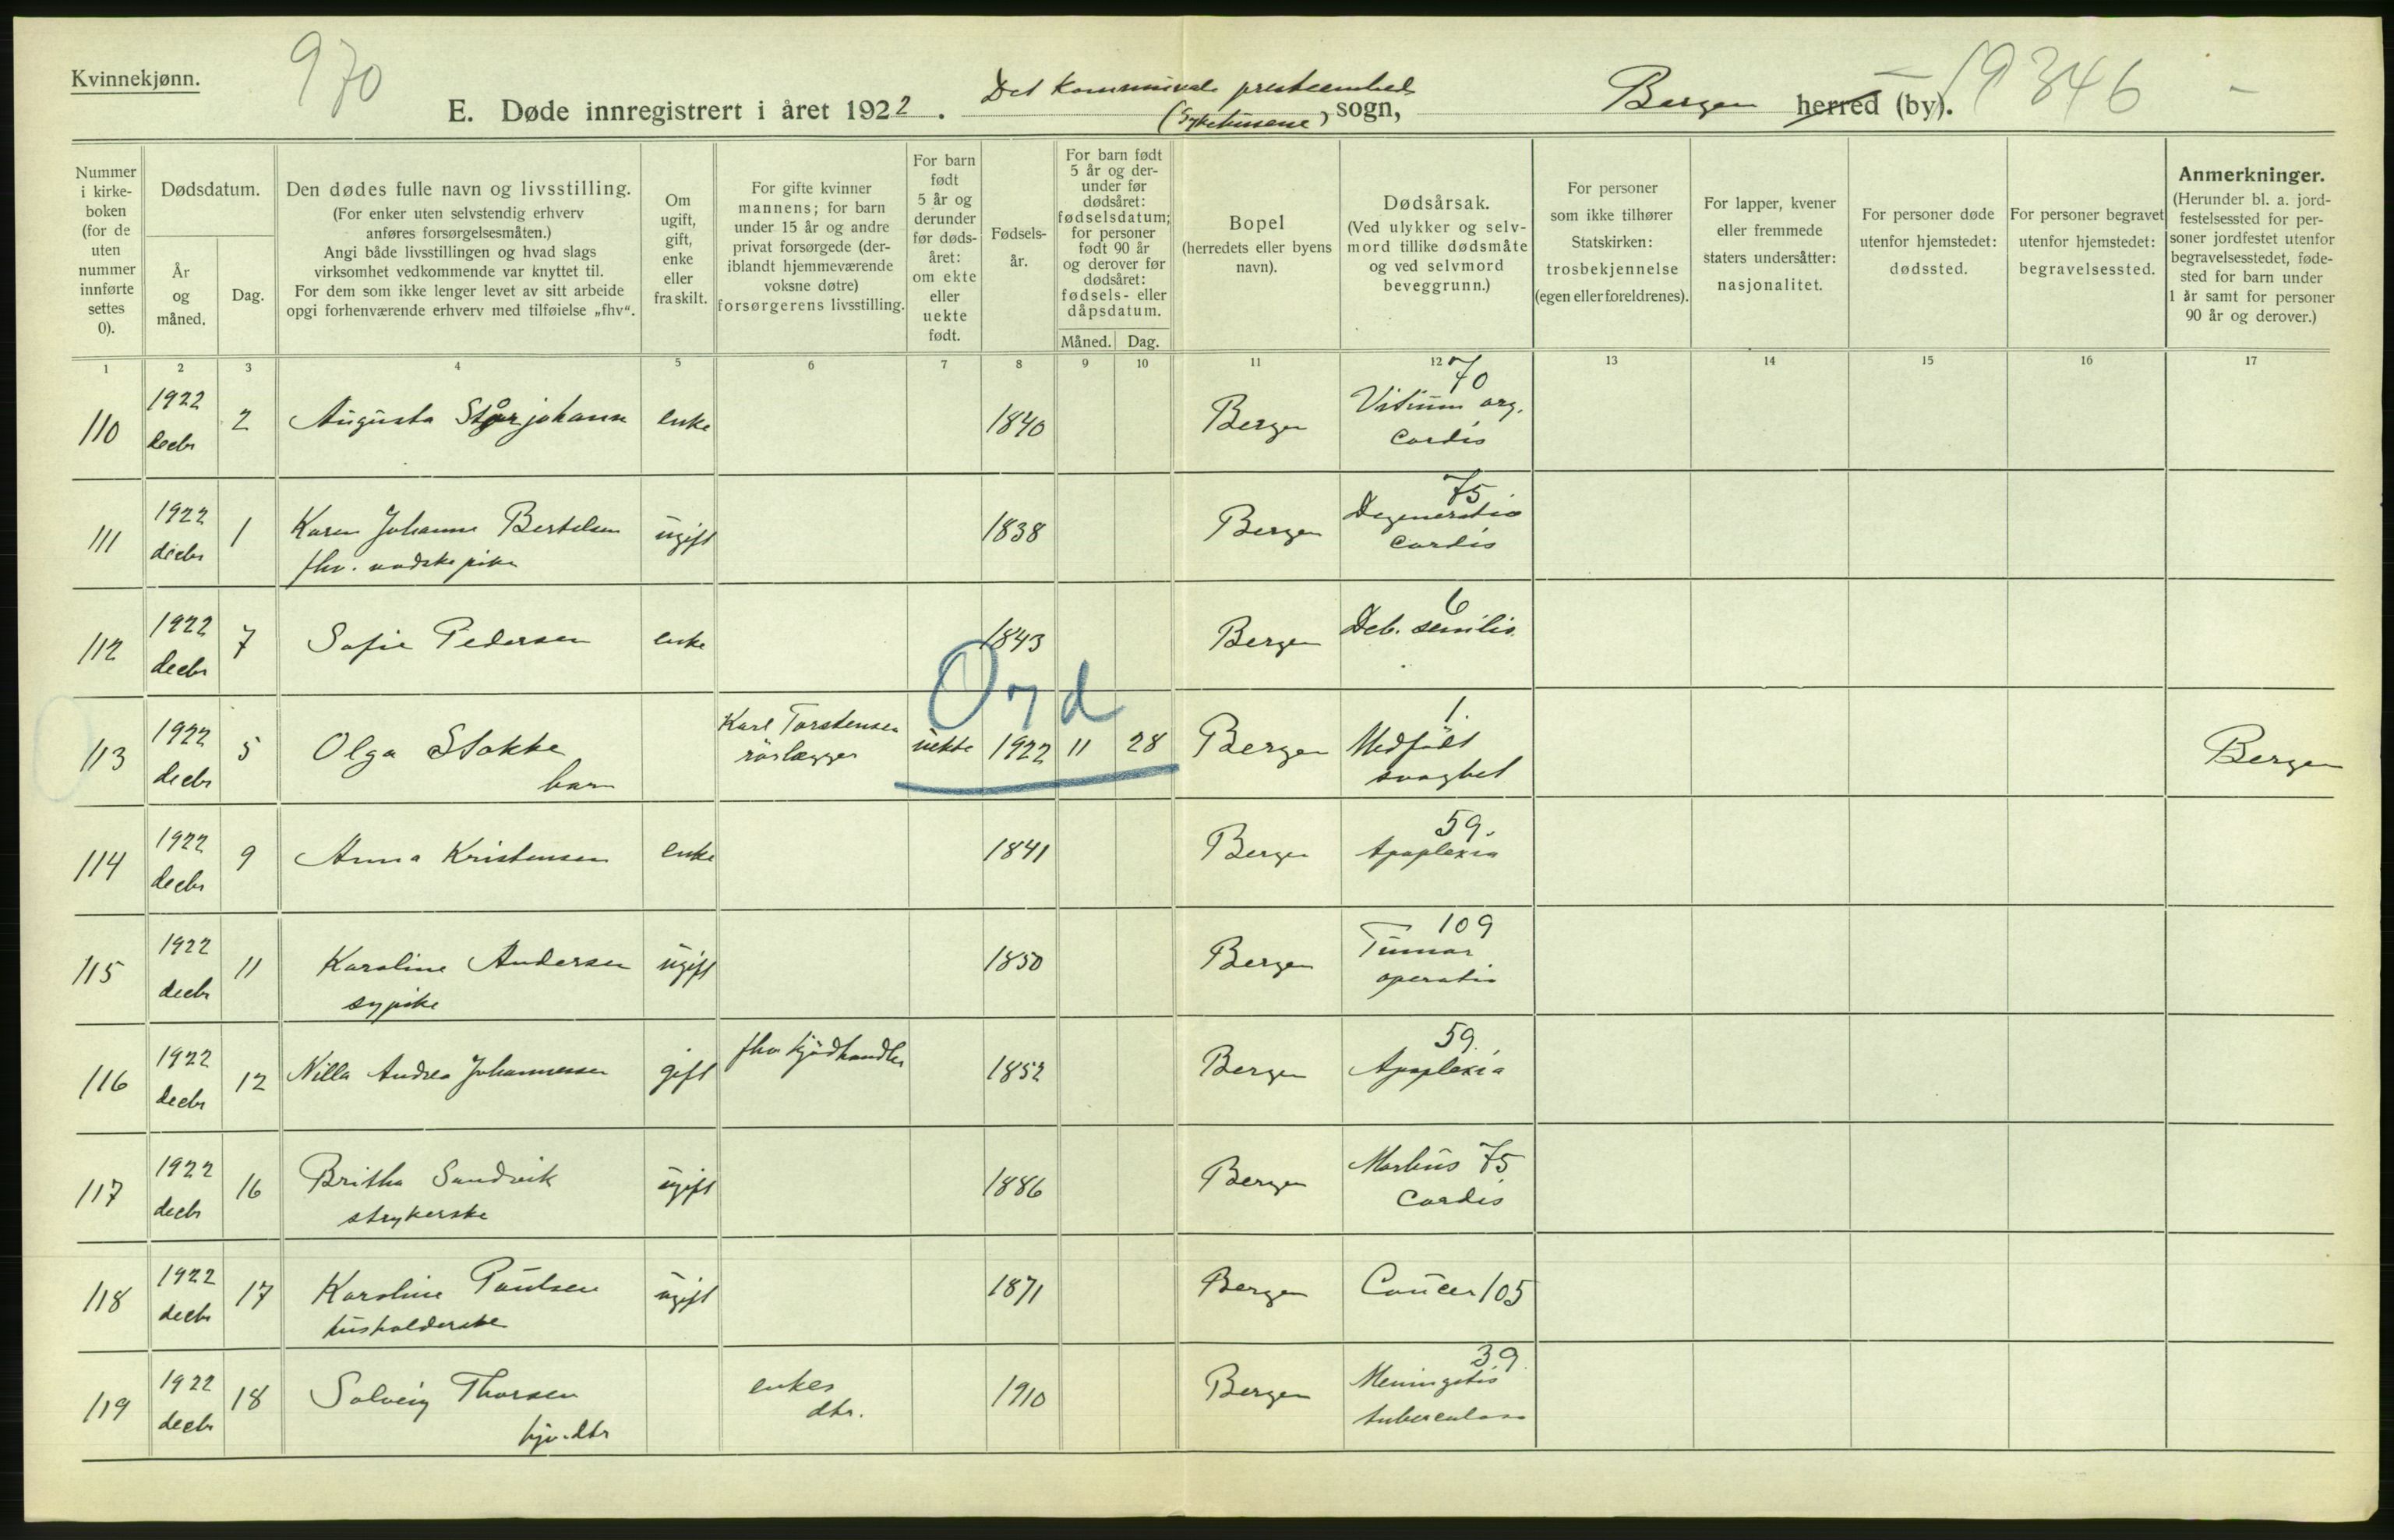 Kvinnekjønn.
970
E. Døde innregistrert i året 1922. Det kommunale presteembede (Sykehusene) sogn, Bergen herred (by). 19346 -
Nummer i kirkeboken (for de uten nummer innførte settes 0).
Dødsdatum.
År og måned.
Dag.
Den dødes fulle navn og livsstilling.
(For enker uten selvstendig erhverv anføres forsørgelsesmåten.)
Angi både livsstillingen og hvad slags virksomhet vedkommende var knyttet til.
For dem som ikke lenger levet av sitt arbeide opgi forhenværende erhverv med tilføielse „fhv“.
Om ugift, gift, enke eller fraskilt.
For gifte kvinner mannens; for barn under 15 år og andre privat forsørgede (deriblandt hjemmeværende voksne døtre) forsørgerens livsstilling.
For barn født 5 år og derunder før dødsåret: om ekte eller uekte født.
Fødselsår.
For barn født 5 år og derunder før dødsåret: fødselsdatum; for personer født 90 år og derover før dødsåret: fødsels- eller dåpsdatum.
Måned. Dag.
Bopel
(herredets eller byens navn).
Dødsårsak.
(Ved ulykker og selvmord tillike dødsmåte og ved selvmord beveggrunn.)
For personer som ikke tilhører Statskirken: trosbekjennelse (egen eller foreldrenes).
For lapper, kvener eller fremmede staters undersåtter: nasjonalitet.
For personer døde utenfor hjemstedet: dødssted.
For personer begravet utenfor hjemstedet: begravelsessted.
Anmerkninger.
(Herunder bl. a. jordfestelsessted for personer jordfestet utenfor begravelsesstedet, fødested for barn under 1 år samt for personer 90 år og derover.)
1 2 3 4 5 6 7 8 9 10 11 12 13 14 15 16 17
110 1922 decbr 2 Augusta Storjohann enke 1840 Bergen 70 Vitium org. cordis
111 1922 decbr 1 Karen Johanne Bertelsen ugift 1838 Bergen 75 Degeneratio cordis
fhv. vaskepike
112 1922 decbr 7 Sofie Pedersen enke 1843 Bergen 6 Deb. senilis.
Ord
113 1922 decbr 5 Olga Stokke barn Karl Torstensen rørlægger uekte 1922 11 28 Bergen 1. Medfødt svaghet Bergen
114 1922 decbr 9 Anna Kristensen enke 1841 Bergen 59. Apoplexia
115 1922 decbr 11 Karoline Andersen ugift 1850 Bergen 109 Tumor operatio
sypike
116 1922 decbr 12 Nilla Andrea Johannessen gift fhv kjødhandler 1852 Bergen 59. Apoplexia
117 1922 decbr 16 Britha Sandvik ugift 1886 Bergen Morbus 75 Cordis
strykerske
118 1922 decbr 17 Karoline Paulsen ugift 1871 Bergen Cancer 105
husholderske
119 1922 decbr 18 Solveig Thorsen enkes dtr. 1910 Bergen 39. Meningitis tuberculosa
hjv. dtr